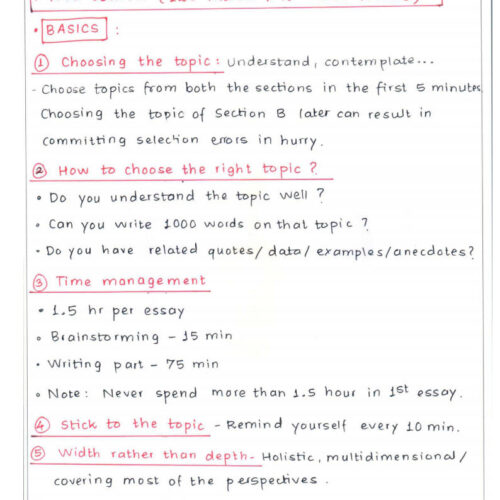 • BASICS :
① Choosing the topic : Understand, contemplate...
- Choose topics from both the sections in the first 5 minutes.
Choosing the topic of Section B later can result in
committing selection errors in hurry.
② How to choose the right topic ?
• Do you understand the topic well ?
• Can you write 1000 words on that topic ?
• Do you have related quotes/data/examples/anecdotes?
③ Time management
• 1.5 hr per essay
• Brainstorming - 15 min
• Writing part - 75 min
• Note : Never spend more than 1.5 hour in 1st essay.
④ Stick to the topic - Remind yourself every 10 min.
⑤ Width rather than depth - Holistic, multidimensional/
covering most of the perspectives.